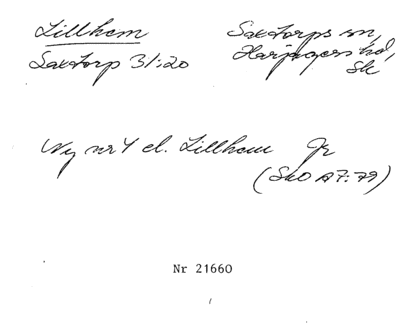 Lillhem
Saxtorps sn,
Saxtorp 31:20
Harjagers hd,
Sk
Ny nr 4 el. Lillhem Jr
(SkO A7:79)
Nr 21660